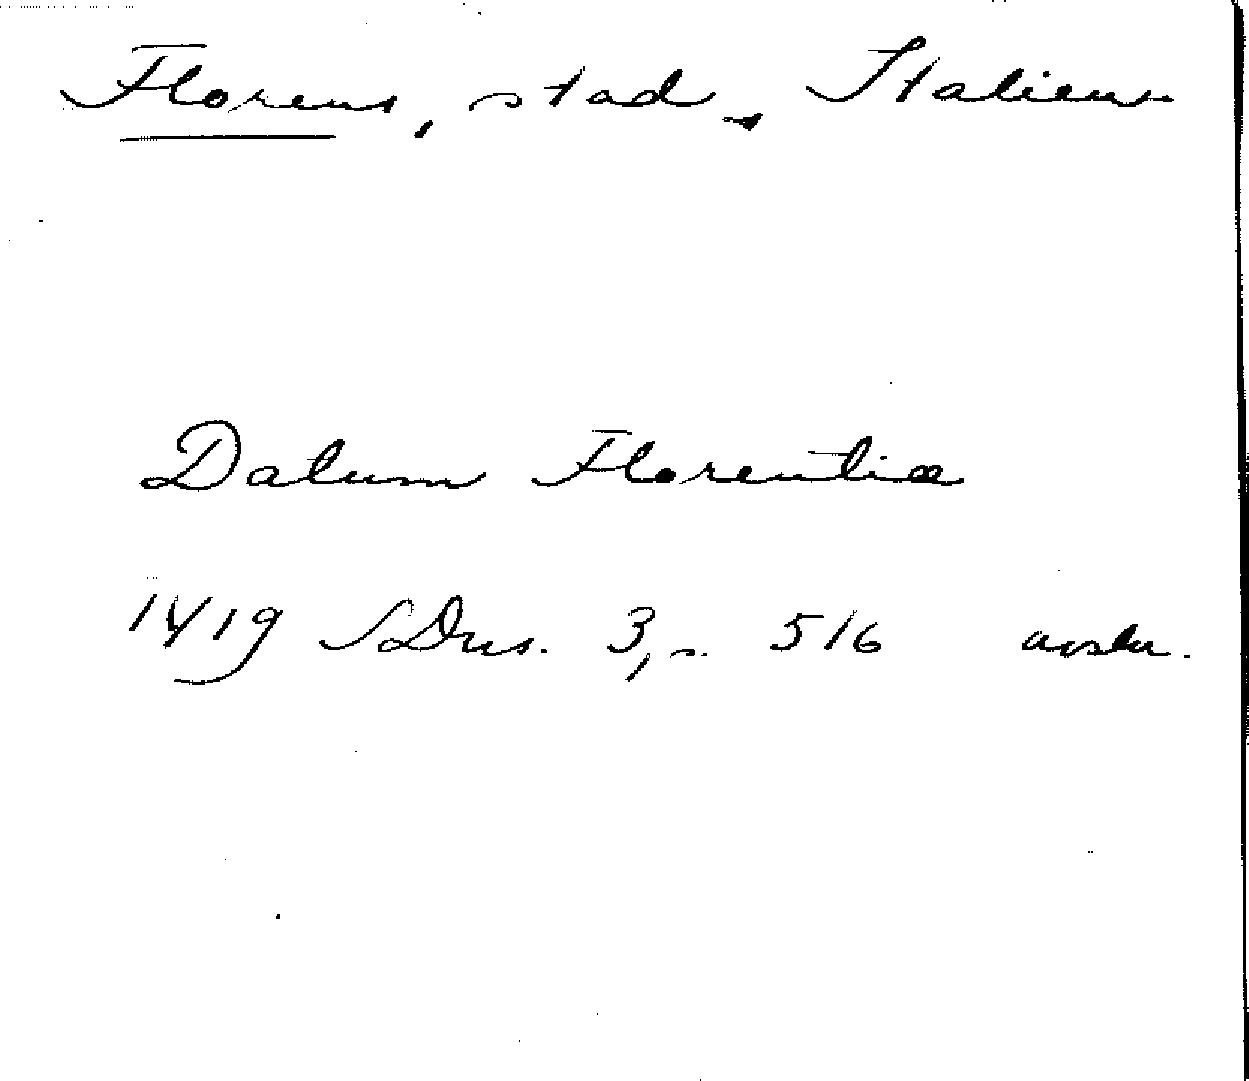 Florens, stad, Italien
Datum Florentiæ
1419 SDns. 3, s. 516 avskr.